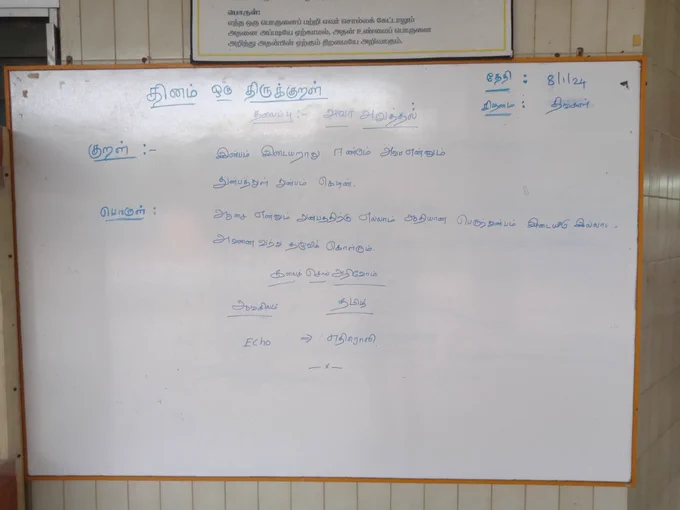 பொருள்:
எந்த ஒரு பொருளைப் பற்றி எவர் சொல்லக் கேட்டாலும்
அதனை அப்படியே ஏற்காமல், அதன் உண்மைப் பொருளை
அறிந்து அதன்பின் ஏற்கும் திறனையே அறிவாகும்.
தேதி : 8/1/24
தினம் ஒரு திருக்குறள்
கிழமை : திங்கள்
தலைப்பு :- அவா அறுத்தல்
குறள் :- இன்பம் இடையறாது ஈண்டும் அவாஎன்னும்
துன்பத்துள் துன்பம் கெடின்.
பொருள் : ஆசை என்னும் துன்பத்திற்கு எல்லாம் இடையீடு இல்லாமல்
கொள்ளும்.
தமிழ்
Echo → எதிரொலி
— x —